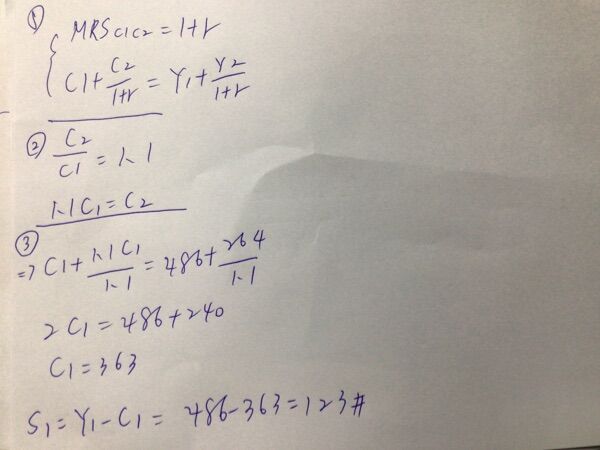 ①
MRS C1C2 = 1+r
C1 + C2/1+r = Y1 + Y2/1+r
② C2/C1 = 1.1
1.1C1 = C2
③
=> C1 + 1.1C1/1.1 = 486 + 264/1.1
2C1 = 486 + 240
C1 = 363
S1 = Y1 - C1 = 486 - 363 = 123#